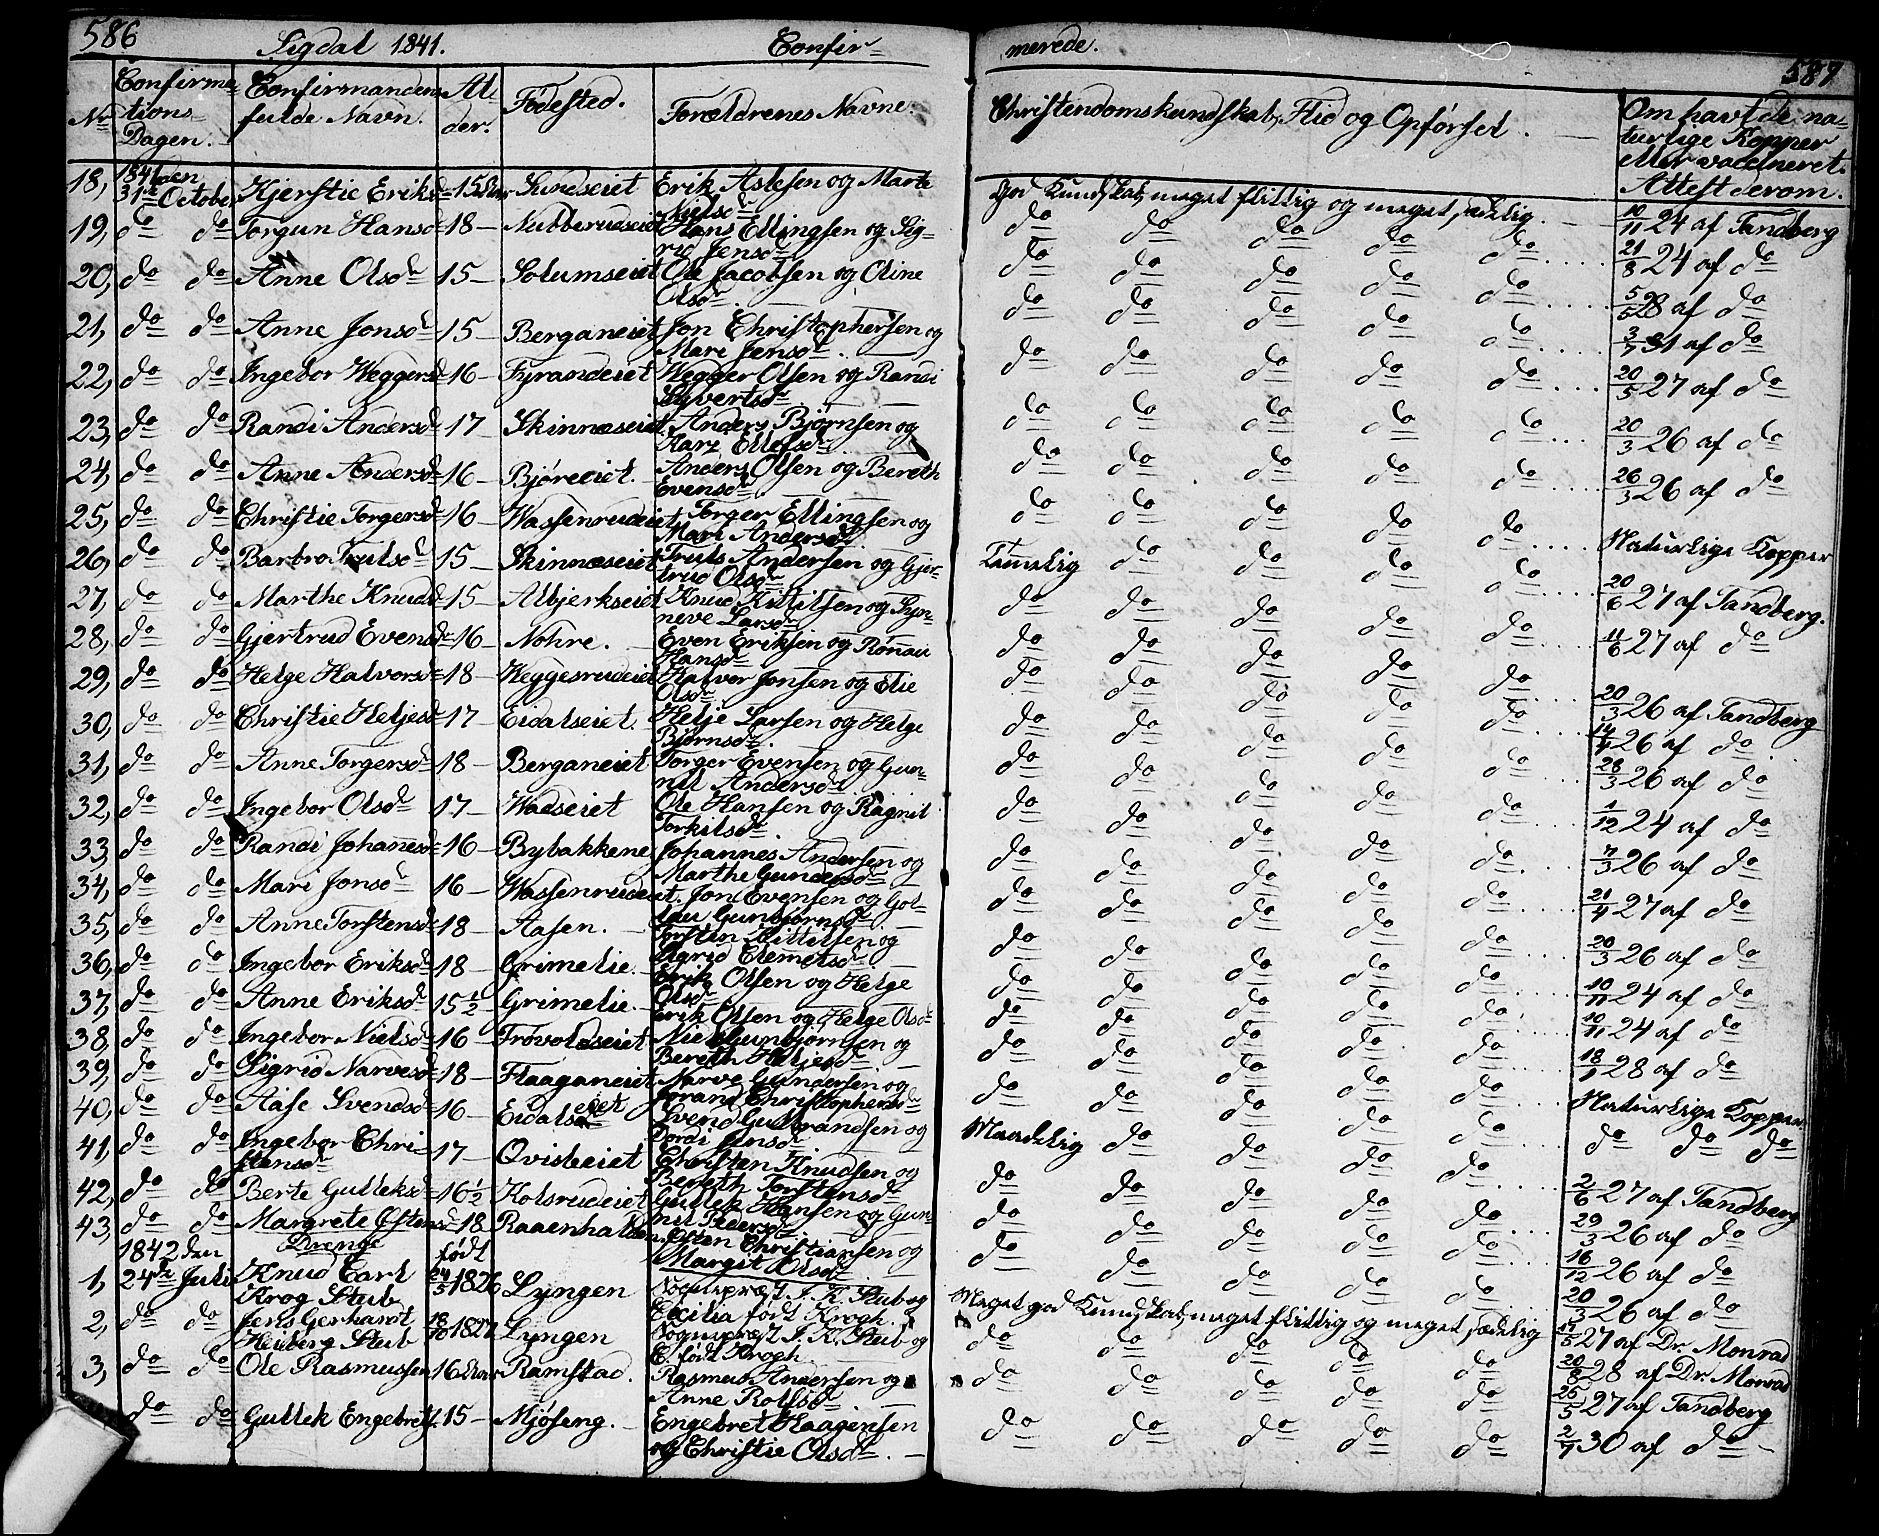 586
Sigdal 1841.
Confir=
Nr
Confirma=
tions=
Dagen.
Confirmandens
fulde Navn.
Al-
der.
Fødested.
Forældrenes Navne.
18, 1841 den 31te October Kjerstie Eriksd 15 Aar Sundseiet Erik Aslesen og Marte
Nielsdr
19, do do Torgun Hansd 18 – Nubberudseiet Hans Ellingsen og Sig-
rid Jensdr
20, do do Anne Olsdr 15 – Solumseiet Ole Jacobsen og Oline
Olsdr.
21, do do Anne Jonsdr 15 – Berganeiet Jon Christophersen og
Mari Jensdr.
22, do do Ingebor Weggersd 16 – Fyrandeiet Wegger Olsen og Randi
Syvertsdr
23, do do Randi Andersd 17 – Skinneseiet Anders Bjørnsen og
Kari Ellefsdr
24, do do Anne Andersd 16 – Bjøreeiet. Anders Olsen og Bereth
Evensdr
25, do do Christie Torgersd 16 – Wassenrudeiet Torger Ellingsen og
Mari Andersdr
26, do do Barbro Trulsdr 15 – Skinneseiet Truls Andersen og Gjer-
trud Olsdr
27, do do Marthe Knudsd 15 – Albjerkseiet Knud Kittilsen og Syn-
neve Larsdr
28, do do Gjertrud Evensd 16 – Nohre. Even Eriksen og Rønau
Hansdr
29, do do Helge Halvorsd 18 – Heggesrudeiet Halvor Jonsen og Elie
Olsdr
30, do do Christie Heljesd 17 – Eidalseiet. Helje Larsen og Helge
Bjørnsdr.
31, do do Anne Torgersd 18 – Berganeiet Torger Evensen og Gun-
nil Andersdr
32, do do Ingebor Olsdr 17 – Wadseiet Ole Hansen og Ragnil
Torkilsdr
33, do do Randi Johanesd 16 – Bybakkene Johannes Andersen og
Marthe Gundersdr
34, do do Mari Jonsdr 16 – Wassenrudeiet. Jon Evensen og Gol-
lau Gunbjørnsdr
35, do do Anne Torstensd 18 – Aasen. Torsten Kittilsen og
Sigrid Clemetsdr
36, do do Ingebor Eriksd 18 – Grimelie. Erik Olsen og Helge
Olsdr
37, do do Anne Eriksdr 15½ Grimelie Erik Olsen og Helge Olsdr
38, do do Ingebor Nielsd 16 Frøvoldseiet Niels Gunbjørnsen og
Bereth Heljesdr
39, do do Sigrid Narvesd 18 – Flaaganeiet Narve Gundersen og
Jørand Christophersdr
40, do do Aase Svendsd 16 – Eidalseiet Svend Gulbrandsen og
Dordi Jensdr
41, do do Ingebor Chri-
stensdr 17 – Qvisleeiet Christen Knudsen og
Bereth Torstensdr
42, do do Berte Gulleksd 16½ Kolsrudeiet Gullek Hansen og Gun-
nil Pedersdr
43, do do Margrete Østensd 18 Raaenhalden. Østen Christiansen og
Margit Olsdr
Drenge
1842 den født
1, 24de Juli Knud Carl
Krog Stub 24/5 1826 Lyngen Sognepræst J. K. Stub og
Cecilia født Krogh.
2, do do Jens Gerhardt
Heiberg Stub 18/10 1827 Lyngen Sognepræst J. K. Stub og
C. født Krogh
3, do do Ole Rasmussen 16 Aar Ramstad. Rasmus Andersen og
Anne Rolfsdr
do do Gullek Engebretsen. 15 – Mjøseng. Engebret Haagensen
og Christie Olsdr.
587
merede.
Christendomskundskab, Flid og Opførsel.
Om havt de na=
turlige Kopper
eller vaccineret.
Attest derom.
God Kundskab, meget flittig og meget sædelig. 10/11 24 af Tandberg
do do do do do 21/8 24 af do
do do do do do 5/5 28 af do
do do do do do 3/7 31 af do
do do do do do 20/5 27 af do
do do do do do 20/3 26 af do
do do do do do 26/3 26 af do
do do do do do Naturlige Kopper
Temelig do do do do 20/6 27 af Tandberg.
do do do do do 11/6 27 af do
do do do do do
do do do do do 20/3 26 af Tandberg
do do do do do 14/4 26 af do
do do do do do 28/3 26 af do
do do do do do 1/12 24 af do
do do do do do 7/3 26 af do
do do do do do 21/4 27 af do
do do do do do 20/3 26 af do
do do do do do 10/11 24 af do
do do do do do 10/11 24 af do
do do do do do 18/1 28 af do
do do do do do Naturlige Kopper
Maadelig do do do do do do do
do do do do do 2/6 27 af Tandberg
do do do do do 29/3 26 af do
do do do do do 16/12 26 af do
20/3 26 af do
Meget god Kundskab, meget flittig og meget sædelig 17/5 27 af Dr. Monrad
do do do do do 20/8 28 af Dr. Monrad
do do do do do 25/5 27 af Tandberg
do do do do do 2/7 30 af do